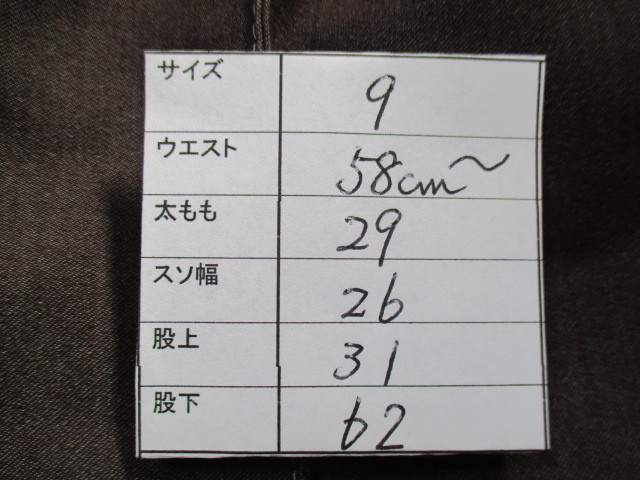 サイズ 9
ウエスト 58cm～
太もも 29
スソ幅 26
股上 31
股下 62